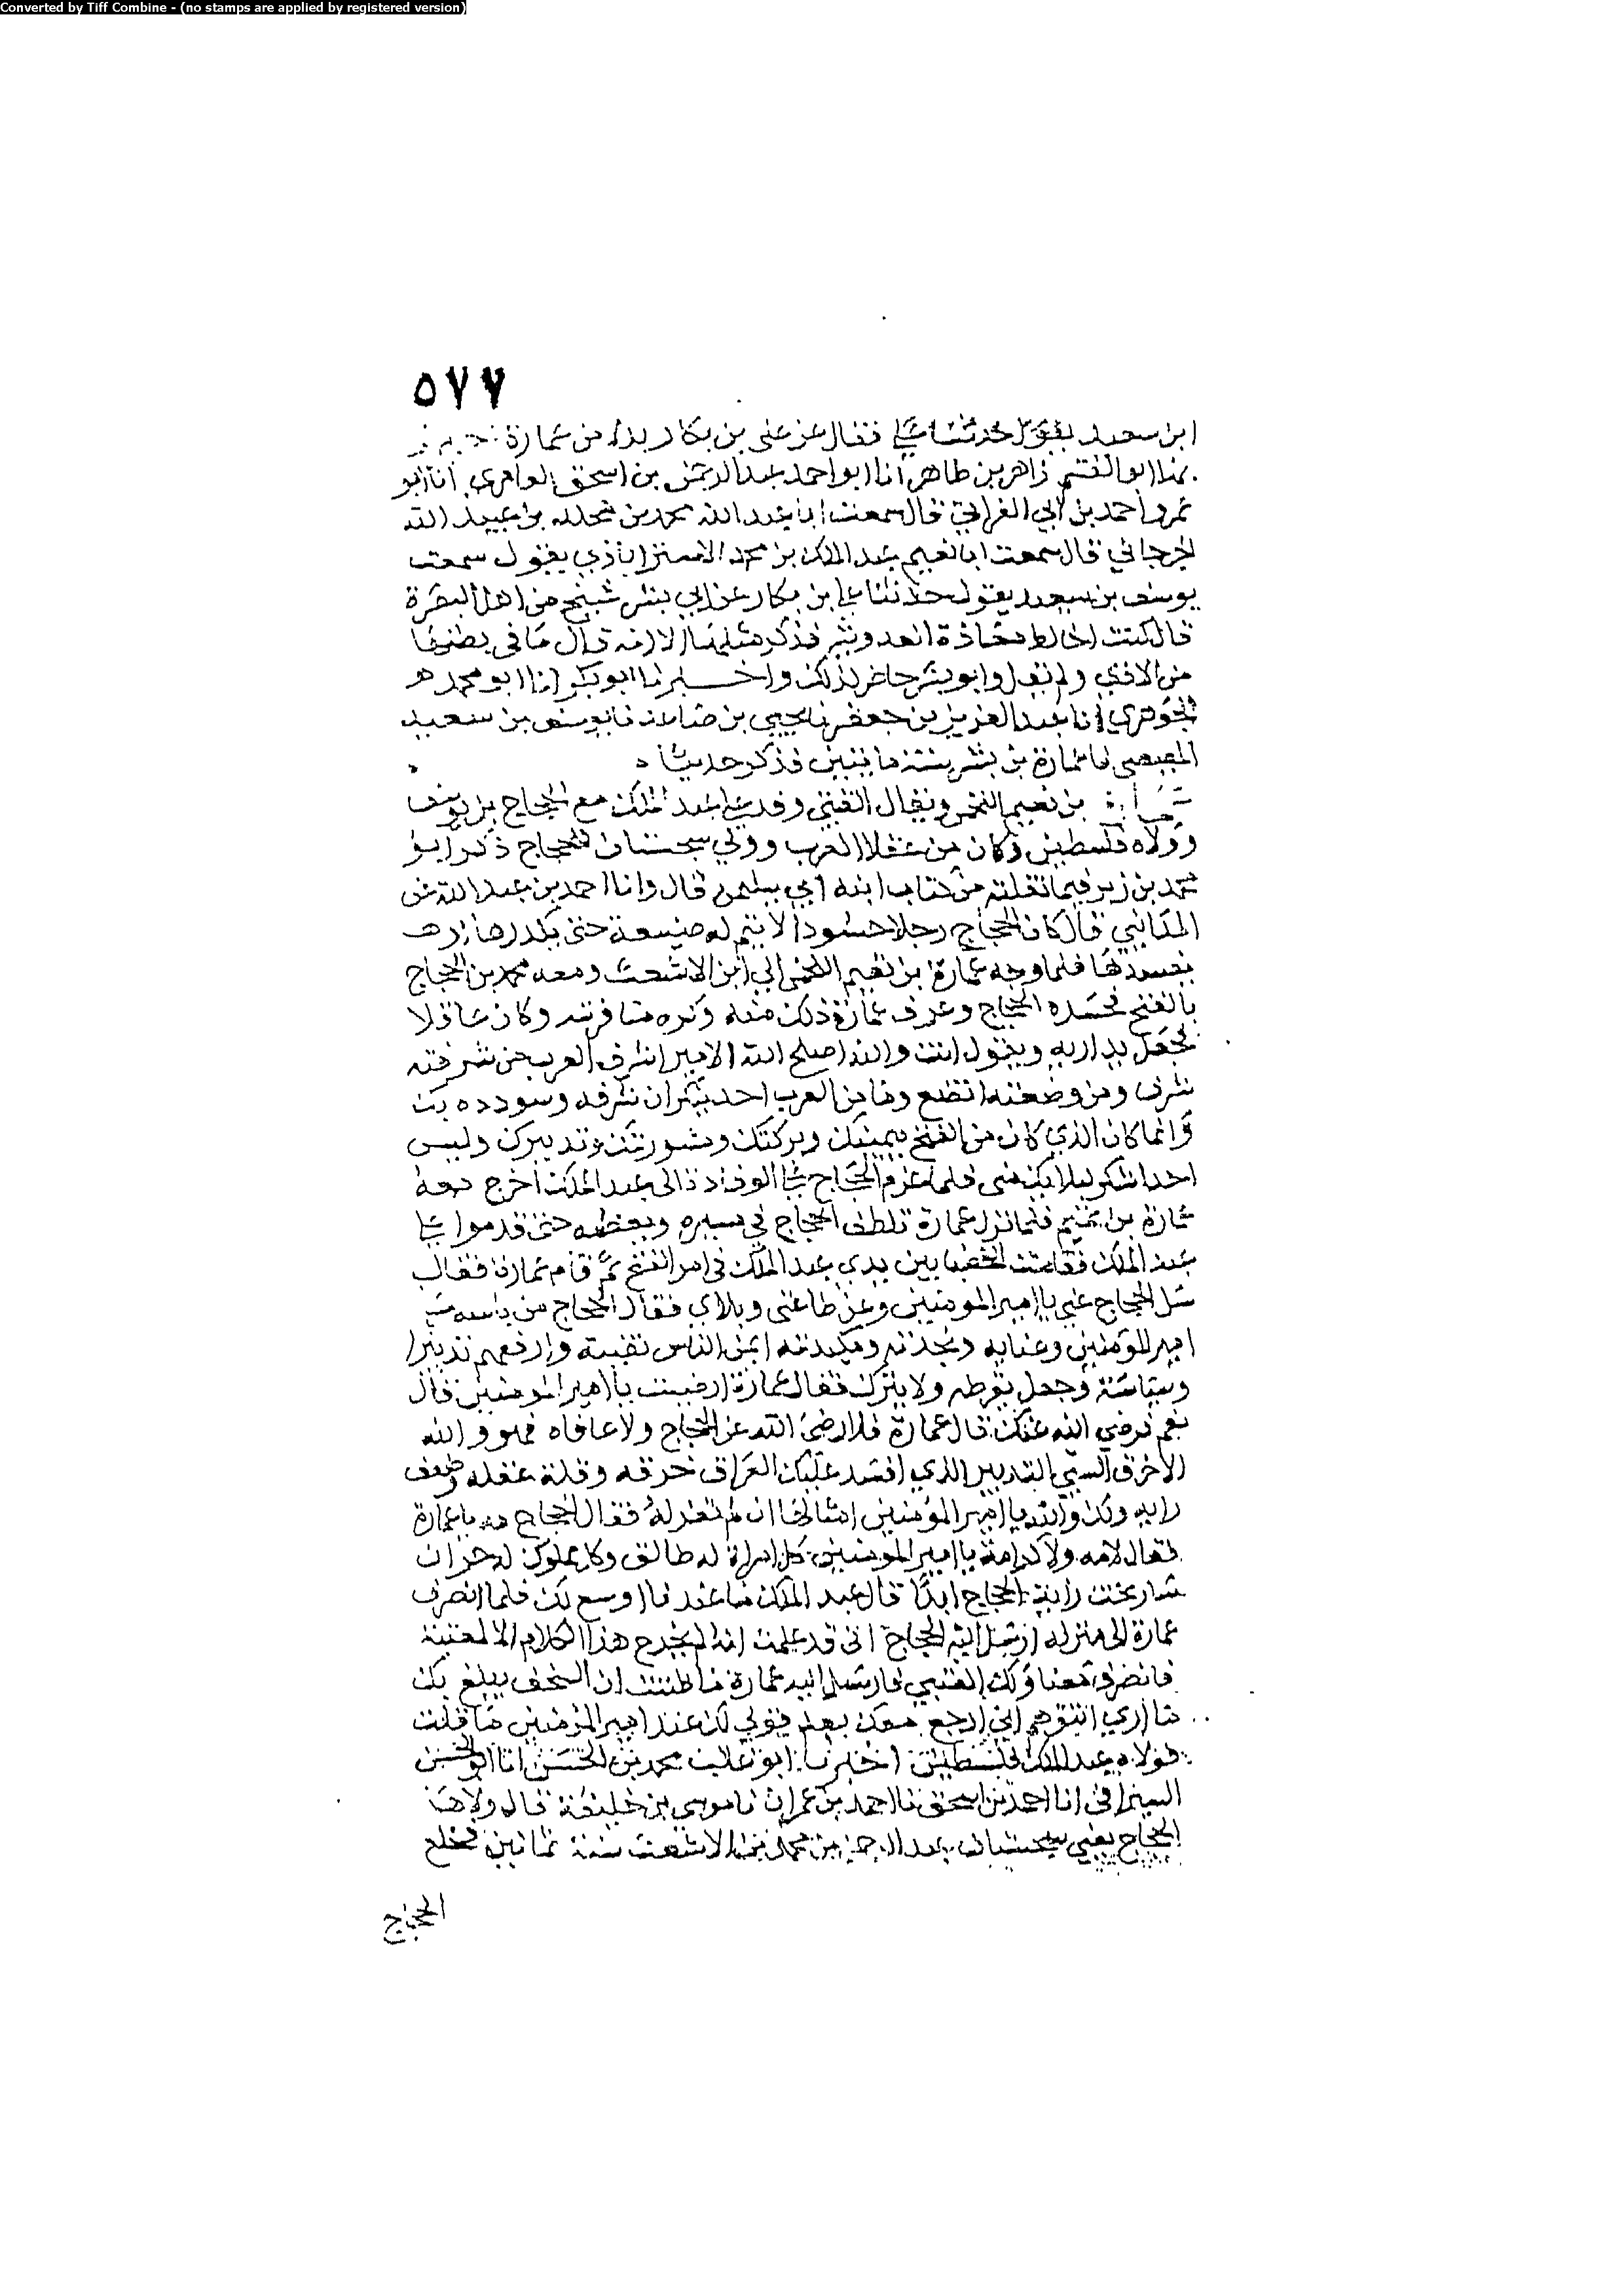 Converted by Tiff Combine - (no stamps are applied by registered version)
٥٧٧
ابن سعيد يقول حدثنا علي فقال عن علي بن بكار بدلا من عمارة
ابو القسم زاهر بن طاهر انا ابو احمد عبد الرحمن بن اسحق العامري انا ابو
عمرو احمد بن ابي الفراتي قال سمعت ابا عبد الله محمد بن عبيد الله
الجرجاني قال سمعت ابا نعيم عبد الملك بن محمد الاستراباذي يقول سمعت
يوسف بن سعيد يقول حدثنا علي بن بكار عن ابي بشر شيخ من اهل البصرة
قال كنت اخالط معاذة العدوية فذكر مثلها الا انه قال ما في بطنها
من الاذي ولم يقل وابو بشر حاضر لذلك واخبرنا ابو بكر انا ابو محمد
الجوهري انا عبد العزيز بن جعفر نا يحيي بن صاعد نا يوسف بن سعيد
المصيصي نا عمارة بن بشر سنة مايتين فذكر حديثا
عمارة بن تميم اللخمي ويقال القيني وفد علي عبد الملك مع الحجاج بن يوسف
وولاه فلسطين وكان من عقلا العرب وولي سجستان للحجاج ذكر ابو
محمد بن زبر فيما نقلته من كتاب ابنه ابي سليمن قال وانا احمد بن عبد الله عن
المدايني قال كان الحجاج رجلا حسودا لا يتم له صنيعة حتى يكدرها
بفسدها فلما وجه عمارة بن تميم اللخمي الي ابن الاشعث ومعه محمد بن الحجاج
بالفتح فحسده الحجاج وعرف عمارة ذلك منه وكره منافرته وكان عاقلا
فجعل يداريه ويقول انت والله اصلح الله الامير اشرف العرب من شرفته
شرف ومن وضعته اتضع وما من العرب احد ينكر ان شرفه وسودده بك
وانما كان الذي كان من الفتح بيمنك وبركتك ومشورتك وتدبيرك وليس
احد اشكر لبلايك مني فلما عزم الحجاج علي الوفادة الى عبد الملك اخرج معه
عمارة بن تميم فلم يزل عمارة يلطف الحجاج في مسيره ويعظمه حتى قدموا علي
عبد الملك فقامت الخطبا بين يدي عبد الملك في امر الفتح ثم قام عمارة فقال
سل الحجاج عني يا امير المومنين وعن طاعتي وبلاي فقال الحجاج من باسه
امير المؤمنين وعنايه ونجدته ومكيدته ايمن الناس نقيبة وارفعهم تدبيرا
وسياسة وجعل يقرظه ولا يترك فقال عمارة ارضيت يا امير المومنين قال
نعم فرضي الله عنك قال عمارة فلا رضي الله عن الحجاج ولا عافاه فهو والله
الاخرق السيي التدبير الذي افسد عليك العراق خرقه وقلة عقله وضعف
رايه ولك والله يا امير المؤمنين امثالها ان لم تعزله فقال الحجاج مه يا عمارة
فقال لا مه ولا كرامة يا امير المومنين كل امراة له طالق وكل مملوك له حر ان
سار تحت راية الحجاج ابدا قال عبد الملك ما عندنا اوسع لك فلما انصرف
عمارة الى منزله ارسل اليه الحجاج اني قد علمت انه لم يخرج هذا الكلام الا لمعتبة
فانصرف معنا ولك العتبي فارسل اليه عمارة ما ظننت ان السخف يبلغ بك
ما اري اتتوهم اني ارجع معك بعد قولي لك عند امير المؤمنين ما قلت
فولاه عبد الملك فلسطين اخبرنا ابو غالب محمد بن الحسن انا ابو الحسن
السيرافي انا احمد بن اسحق نا احمد بن عمران نا موسي بن خليفة قال ولاها
الحجاج يعني سجستان عبد الرحمن بن محمد بن الاشعث سنة ثمانين فخلع
الحجاج